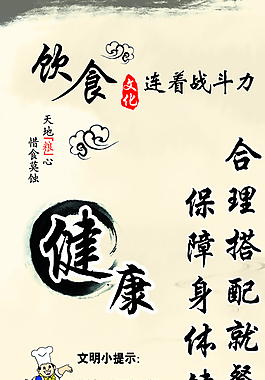 饮食文化连着战斗力
天地「粮」心
惜食莫蚀
合理搭配就餐
保障身体健
健康
文明小提示: